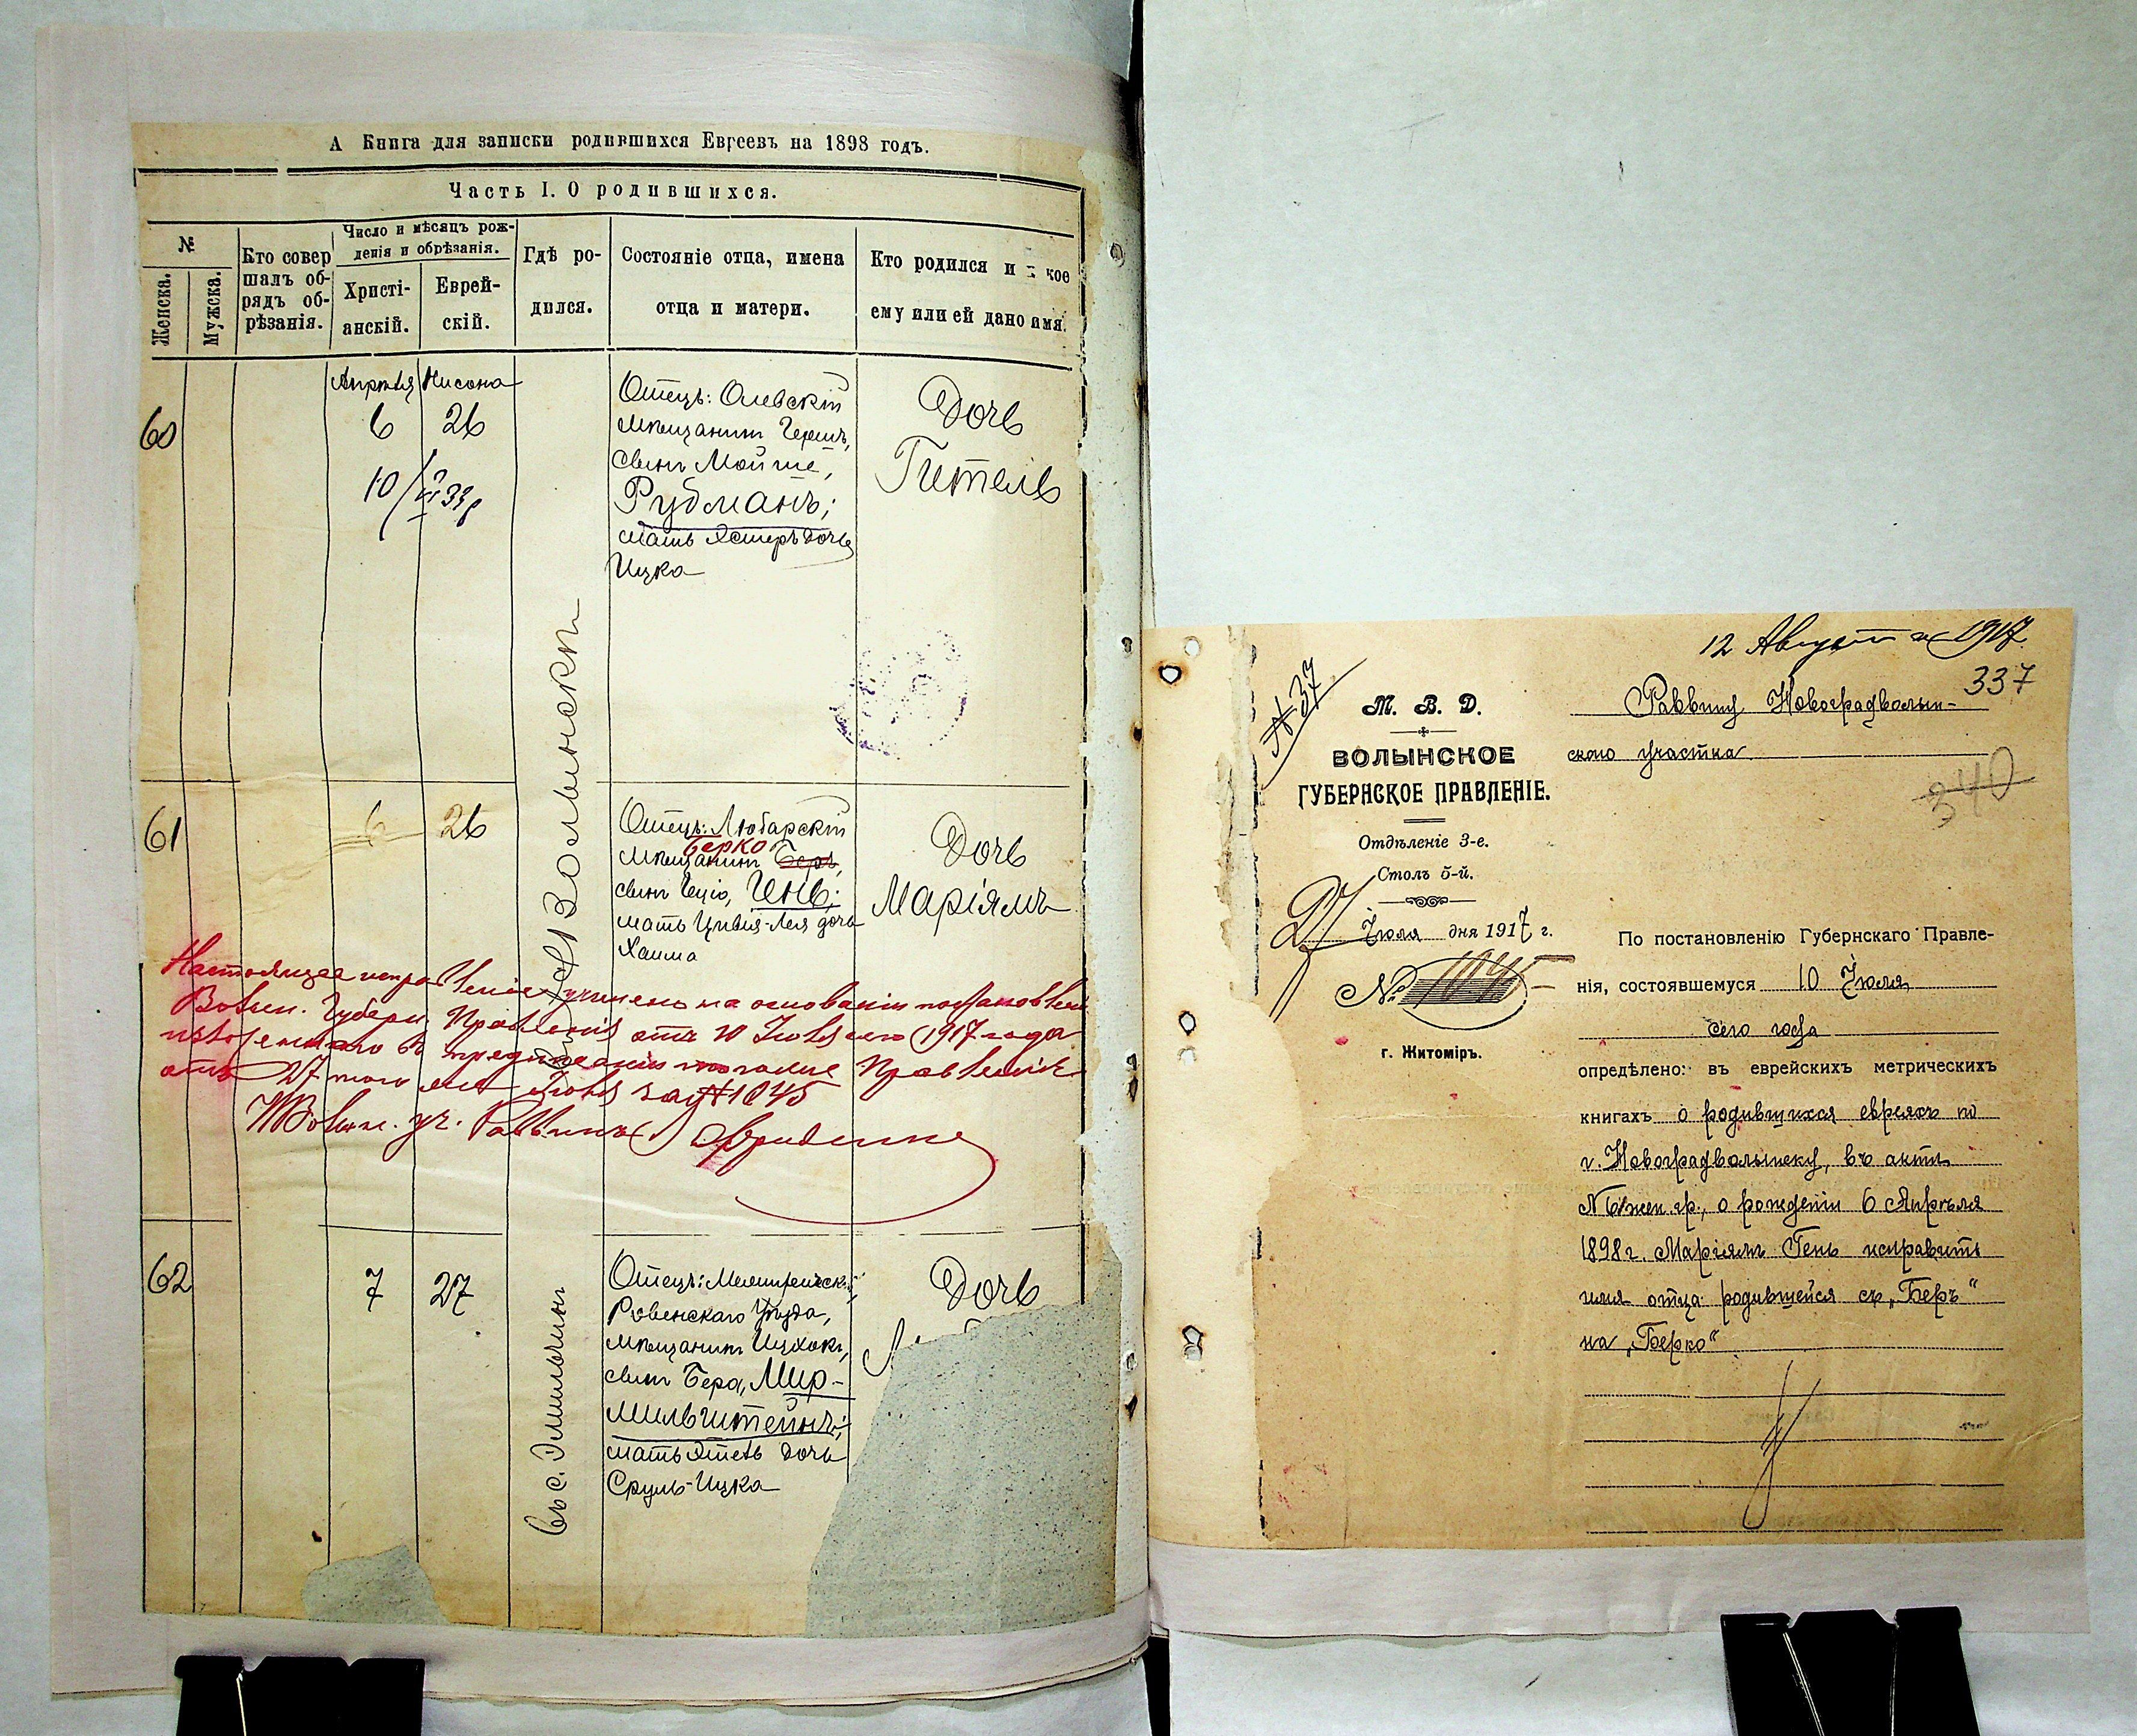 А Книга для записки родившихся Евреевъ на 1898 годъ.
Часть I. О родившихся.
№
Женска.
Мужска.
Кто совер
шалъ об-
рядъ об-
рѣзанія.
Число и мѣсяцъ рож-
денія и обрѣзанія.
Христі-
анскій.
Еврей-
скій.
Гдѣ ро-
дился.
Состояніе отца, имена
отца и матери.
Кто родился и кое
ему или ей дано имя.
60
Апрѣля Нисона
6 26
10/VI 33г
Отецъ: Олевскій
мѣщанинъ Гершъ,
сынъ Мойше,
Рубманъ;
мать Эстеръ дочь
Ицка
Дочь
Гитель
Волынски
61
6 26
Отецъ: Любарскій
Берко
мѣщанинъ Беръ,
сынъ Гецiо, Генъ;
мать Цивія-Лея дочь
Хаима
Дочь
Маріямъ
Настоящее исправленіе учинено на основаніи постановлені
Волын. Губерн. Правленія отъ 10 Іюля сего 1917 года
изложеннаго въ предписаніи того же Правленія
отъ 27 того же Іюля за № 1045
НВолын. уч. Раввинъ
62
7 27
въ с. Эмильчинъ
Ровенскаго Уѣзда,
мѣщанинъ Ицхокъ,
сынъ Бера, Мир-
мильштейнъ;
мать Этель дочь
Сруль-Ицка
Дочь
12 Августа 1917
337
№ 37
М. В. Д.
ВОЛЫНСКОЕ
ГУБЕРНСКОЕ ПРАВЛЕНІЕ.
Отдѣленіе 3-е.
Столъ 5-й.
27 Іюля дня 1917 г.
№ 1045
г. Житоміръ.
Раввину Новоградволын-
скаго участка
340
По постановленію Губернскаго Правле-
нія, состоявшемуся 10 Іюля
сего года
опредѣлено: въ еврейскихъ метрическихъ
книгахъ о родившихся евреяхъ по
г. Новоградволынску, въ актѣ
№ 61 жен. гр., о рожденіи 6 Апрѣля
1898 г. Маріямъ Генъ исправить
имя отца родившейся съ „Беръ“
на „Берко“